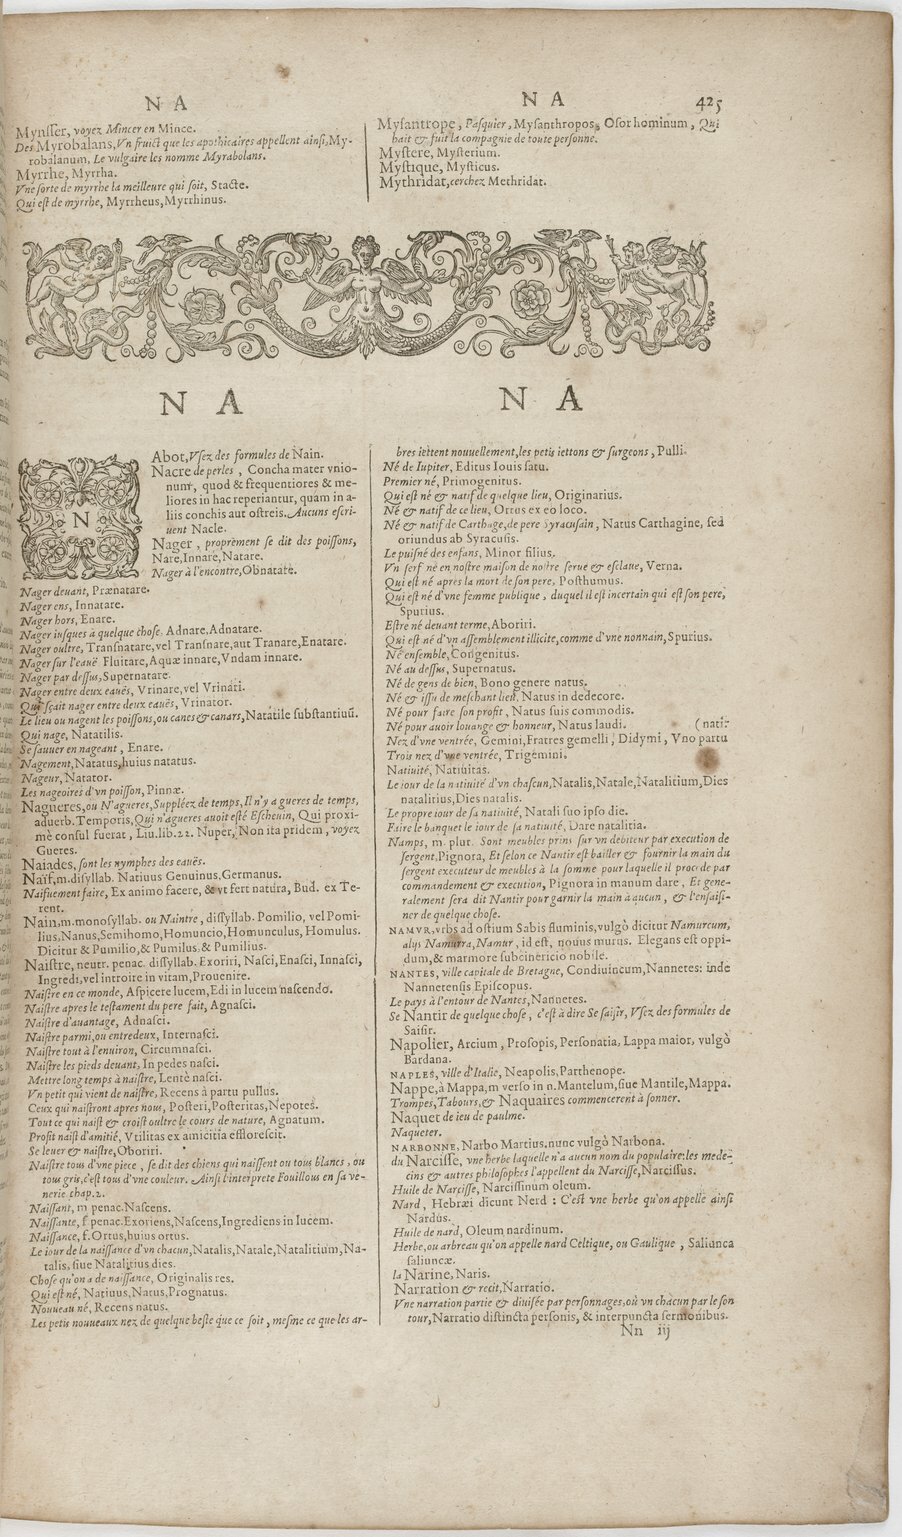 N A
Mynſſer, voyez Mincer en Mince.
Des Myrobalans, Vn fruict que les apothicaires appellent ainſi, My-
robalanum, Le vulgaire les nomme Myrabolans.
Myrrhe, Myrrha.
Vne ſorte de myrrhe la meilleure qui ſoit, Stacte.
Qui eſt de myrrhe, Myrrheus, Myrrhinus.
N A 425
Myſantrope, Paſquier, Myſanthropos, Oſor hominum, Qui
hait & fuit la compagnie de toute perſonne.
Myſtere, Myſterium.
Myſtique, Myſticus.
Mythridat, cerchez Methridat.
N A
N
Abot, Vſez des formules de Nain.
Nacre de perles, Concha mater vnio-
num, quod & frequentiores & me-
liores in hac reperiantur, quam in a-
liis conchis aut oſtreis. Aucuns eſcri-
uent Nacle.
Nager, proprement ſe dit des poiſſons,
Nare, Innare, Natare.
Nager à l'encontre, Obnatare.
Nager deuant, Prænatare.
Nager ens, Innatare.
Nager hors, Enare.
Nager iuſques à quelque choſe. Adnare, Adnatare.
Nager oultre, Tranſnatare, vel Tranſnare, aut Tranare, Enatare.
Nager ſur l'eauë Fluitare, Aquæ innare, Vndam innare.
Nager par deſſus, Supernatare.
Nager entre deux eauës, Vrinare, vel Vrinari.
Qui ſçait nager entre deux eauës, Vrinator.
Le lieu ou nagent les poiſſons, ou canes & canars, Natatile ſubſtantiuũ.
Qui nage, Natatilis.
Se ſauuer en nageant, Enare.
Nagement, Natatus, huius natatus.
Nageur, Natator.
Les nageoires d'vn poiſſon, Pinnæ.
Nagueres, ou N'agueres, Suppléez de temps, Il n'y a gueres de temps,
aduerb. Temporis, Qui n'agueres auoit eſté Eſcheuin, Qui proxi-
mè conſul fuerat, Liu. lib. 22. Nuper, Non ita pridem, voyez
Gueres.
Naiades, ſont les nymphes des eauës.
Naïf, m. diſyllab. Natiuus Genuinus, Germanus.
Naifuement faire, Ex animo facere, & vt fert natura, Bud. ex Te-
rent.
Nain, m. monoſyllab. ou Naintre, diſſyllab. Pomilio, vel Pomi-
lius, Nanus, Semihomo, Homuncio, Homunculus, Homulus.
Dicitur & Pumilio, & Pumilus, & Pumilius.
Naiſtre, neutr. penac. diſſyllab. Exoriri, Naſci, Enaſci, Innaſci,
Ingredi, vel introire in vitam, Prouenire.
Naiſtre en ce monde, Aſpicere lucem, Edi in lucem naſcendo.
Naiſtre apres le teſtament du pere fait, Agnaſci.
Naiſtre d'auantage, Adnaſci.
Naiſtre parmi, ou entredeux, Internaſci.
Naiſtre tout à l'enuiron, Circumnaſci.
Naiſtre les pieds deuant, In pedes naſci.
Mettre long temps à naiſtre, Lentè naſci.
Vn petit qui vient de naiſtre, Recens à partu pullus.
Ceux qui naiſtront apres nous, Poſteri, Poſteritas, Nepotes.
Tout ce qui naiſt & croiſt oultre le cours de nature, Agnatum.
Profit naiſt d'amitié, Vtilitas ex amicitia effloreſcit.
Se leuer & naiſtre, Oboriri.
Naiſtre tous d'vne piece, ſe dit des chiens qui naiſſent ou tous blancs, ou
tous gris, c'eſt tous d'vne couleur. Ainſi l'interprete Fouillous en ſa ve-
nerie chap. 2.
Naiſſant, m penac. Naſcens.
Naiſſante, f penac. Exoriens, Naſcens, Ingrediens in lucem.
Naiſſance, f. Ortus, huius ortus.
Le iour de la naiſſance d'vn chacun, Natalis, Natale, Natalitium, Na-
talis, ſiue Natalitius dies.
Choſe qu'on a de naiſſance, Originalis res.
Qui eſt né, Natiuus, Natus, Prognatus.
Nouueau né, Recens natus.
Les petis nouueaux nez de quelque beſte que ce ſoit, meſme ce que les ar-
N A
bres iettent nouuellement, les petis iettons & ſurgeons, Pulli.
Né de Iupiter, Editus Iouis ſatu.
Premier né, Primogenitus.
Qui eſt né & natif de quelque lieu, Originarius.
Né & natif de ce lieu, Ortus ex eo loco.
Né & natif de Carthage, de pere Syracuſain, Natus Carthagine, ſed
oriundus ab Syracuſis.
Le puiſné des enfans, Minor filius.
Vn ſerf né en noſtre maiſon de noſtre ſerue & eſclaue, Verna.
Qui eſt né apres la mort de ſon pere, Poſthumus.
Qui eſt né d'vne femme publique, duquel il eſt incertain qui eſt ſon pere,
Spurius.
Eſtre né deuant terme, Aboriri.
Qui eſt né d'vn aſſemblement illicite, comme d'vne nonnain, Spurius.
Né enſemble, Congenitus.
Né au deſſus, Supernatus.
Né de gens de bien, Bono genere natus.
Né & iſſu de meſchant lieu, Natus in dedecore.
Né pour faire ſon profit, Natus ſuis commodis.
Né pour auoir louange & honneur, Natus laudi. (nati.
Nez d'vne ventrée, Gemini, Fratres gemelli, Didymi, Vno partu
Trois nez d'vne ventrée, Trigemini.
Natiuité, Natiuitas.
Le iour de la natiuité d'vn chaſcun, Natalis, Natale, Natalitium, Dies
natalitius, Dies natalis.
Le propre iour de ſa natiuité, Natali ſuo ipſo die.
Faire le banquet le iour de ſa natiuité, Dare natalitia.
Namps, m. plur. Sont meubles prins ſur vn debiteur par execution de
ſergent, Pignora, Et ſelon ce Nantir eſt bailler & fournir la main du
ſergent executeur de meubles à la ſomme pour laquelle il procede par
commandement & execution, Pignora in manum dare, Et gene-
ralement ſera dit Nantir pour garnir la main à aucun, & l'enſaiſi-
ner de quelque choſe.
NAMVR, vrbs ad oſtium Sabis fluminis, vulgò dicitur Namurcum,
alijs Namurra, Namur, id eſt, nouus murus. Elegans eſt oppi-
dum, & marmore ſubcinericio nobile.
NANTES, ville capitale de Bretagne, Condiuincum, Nannetes: inde
Nannetenſis Epiſcopus.
Le pays à l'entour de Nantes, Nannetes.
Se Nantir de quelque choſe, c'eſt à dire Se ſaiſir, Vſez des formules de
Saiſir.
Napolier, Arcium, Proſopis, Perſonatia, Lappa maior, vulgò
Bardana.
NAPLES, ville d'Italie, Neapolis, Parthenope.
Nappe, à Mappa, m verſo in n. Mantelum, ſiue Mantile, Mappa.
Trompes, Tabours, & Naquaires commencerent à ſonner.
Naquet de ieu de paulme.
Naqueter.
NARBONNE, Narbo Martius, nunc vulgò Narbona.
du Narciſſe, vne herbe laquelle n'a aucun nom du populaire: les mede-
cins & autres philoſophes l'appellent du Narciſſe, Narciſſus.
Huile de Narciſſe, Narciſſinum oleum.
Nard, Hebræi dicunt Nerd: C'eſt vne herbe qu'on appelle ainſi
Nardus.
Huile de nard, Oleum nardinum.
Herbe, ou arbreau qu'on appelle nard Celtique, ou Gaulique, Saliunca
ſaliuncæ.
la Narine, Naris.
Narration & recit, Narratio.
Vne narration partie & diuiſée par perſonnages, où vn chacun par le ſon
tour, Narratio diſtincta perſonis, & interpuncta ſermonibus.
Nn iij